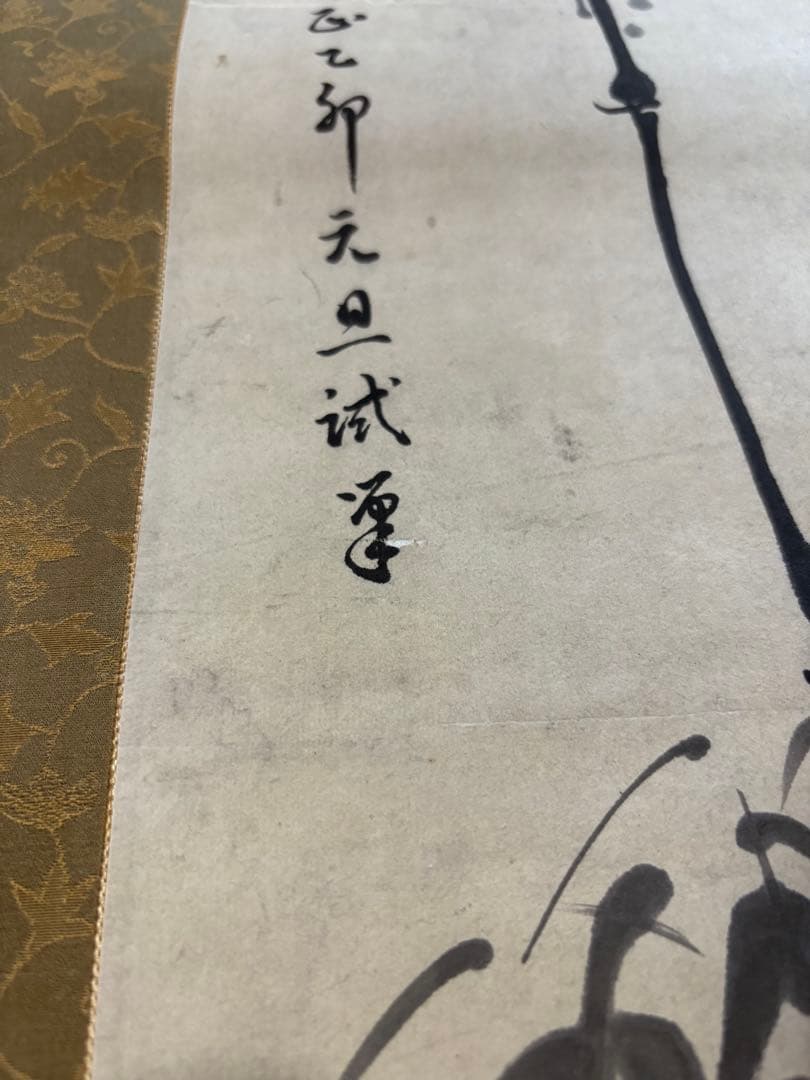 正乙卯元旦試筆